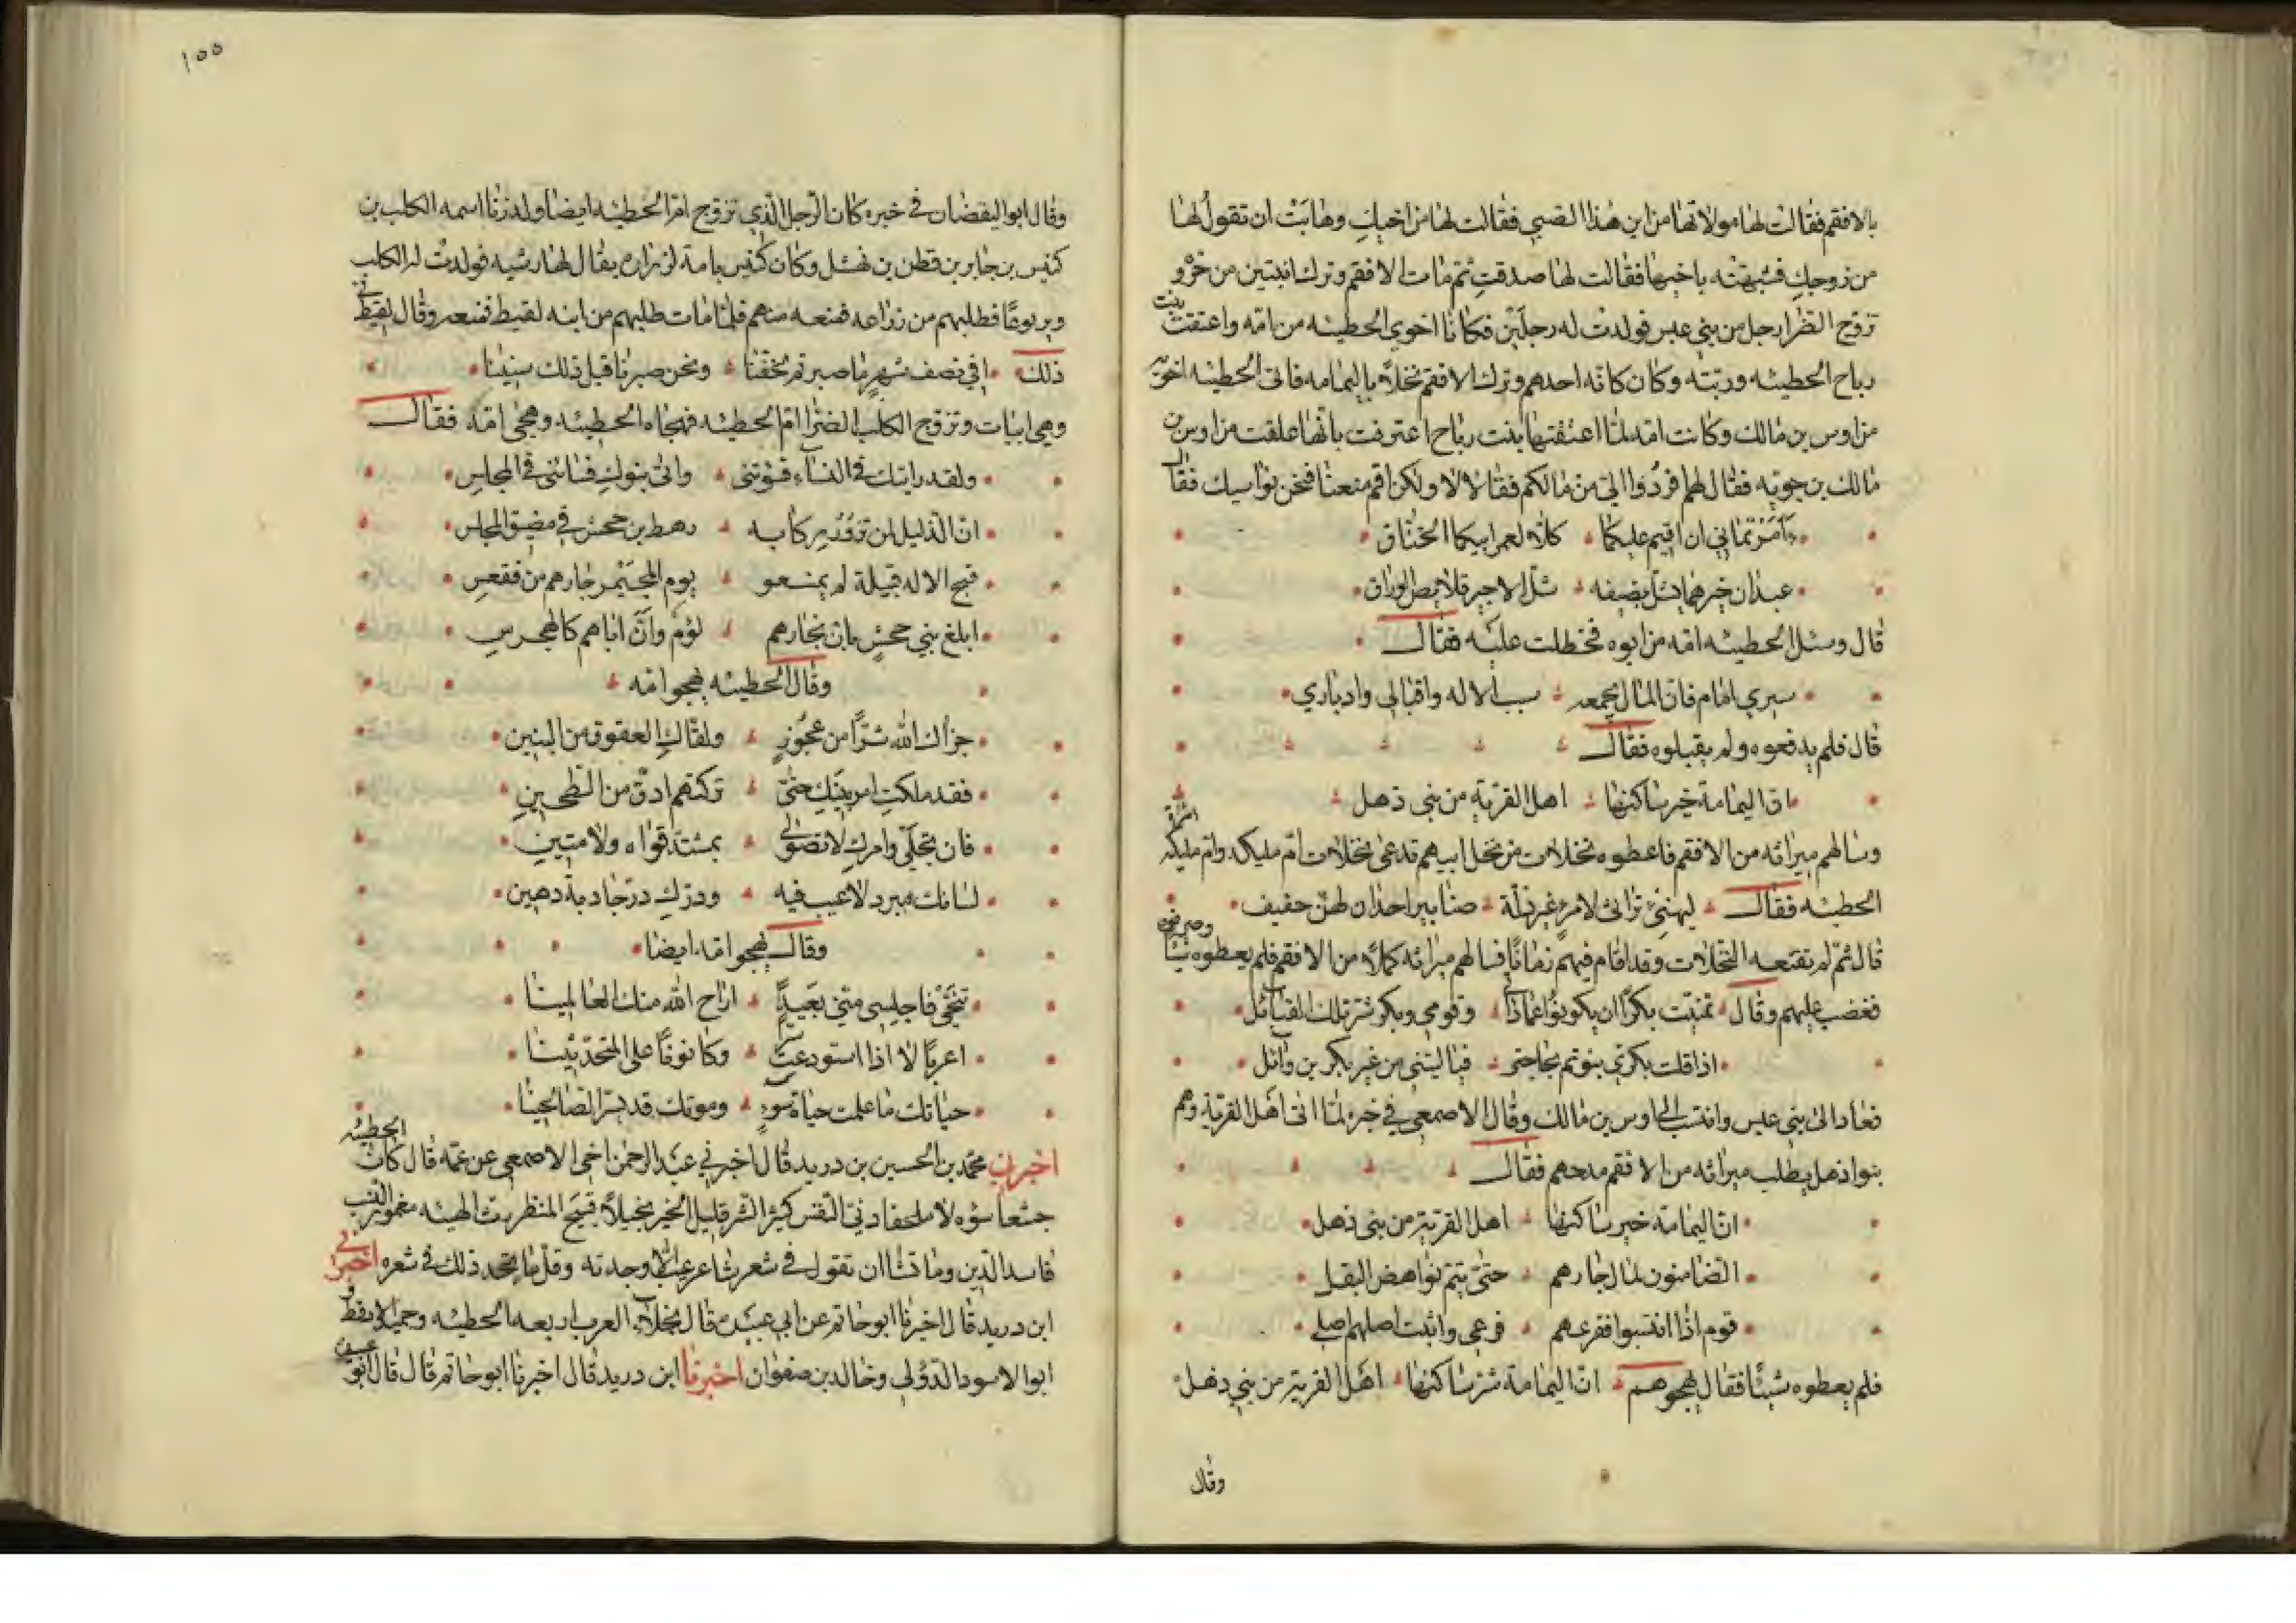 بالافقم فقالت لها مولاتها من اين هذا الصبي فقالت لها من اخيك وهابت ان تقول لها
من زوجك فشبهته باخيها فقالت لها صدقت ثم مات الافقم وترك ابنين من حرة و
تزوج الضرا رجل من بني عبس فولدت له رجلين فكانا اخوي الحطيئه من امه واعتقت بنت
رباح الحطيئه وربته وكان كانه احدهم وترك الافقم نخلا باليمامه فاتى الحطيئه اخويه
من اوس بن مالك وكانت امه لما اعتقتها بنت رباح اعترفت بانها علقت من اوس بن
مالك بن جويه فقال لهم افردوا الي من مالكم فقالا لا ولكن اقم معنا فنحن نواسيك فقال
ءآمرتماني ان اقيم عليكما كلا لعمر ابيكما الحناق
عبدان خيرهما يشل بضيفه شل الاجير قلايص الوراق
قال وسئل الحطيئه امه من ابوه فخطلت عليه فقال
سيري امام فان المال يجمعه سيب الاله واقبالي وادباري
قال فلم يدفعوه ولم يقبلوه فقال
ان اليمامة خير ساكنها اهل القرية من بني ذهل
وسالهم ميراثه من الافقم فاعطوه نخلات من نخل ابيهم تدعى نخلات ام مليكه وام مليكه امراة
الحطيئه فقال ليهني تراثي لامرئ غير ذلة صنابير احدان لهن حفيف
قال ثم لم تقنعه النخلات وقد اقام فيهم زمانا فسالهم ميراثه كملا من الافقم فلم يعطوه شيئا وضربوه
فغضب عليهم وقال تمنيت بكرا ان يكونوا عمادتي وقومي وبكر شر تلك القبائل
اذا قلت بكري نبوتم بحاجتي فيا ليتني من غير بكر بن وائل
فعاد الى بني عبس وانتسب الى اوس بن مالك وقال الاصمعي في خبره لما اتى اهل القرية وهم
بنوا ذهل يطلب ميراثه من الافقم مدحهم فقال
ان اليمامة خير ساكنها اهل القرية من بني ذهل
الضامنون لمال جارهم حتى يتم نواهض البقل
قوم اذا انتسبوا ففرعهم فرعي واثبت اصلهم اصلي
فلم يعطوه شيئا فقال يهجوهم ان اليمامة شر ساكنها اهل القرية من بني ذهل
وقال
١٥٥
وقال ابو اليقضان في خبره كان الرجل الذي تزوج ام الحطيئه ايضا ولد زنا اسمه الكلب بن
كنيس بن جابر بن قطن بن نهشل وكان كنيس بامة لزراره يقال لها رشيه فولدت له الكلب
ويربوعا فطلبهم من زراعه فمنعه منهم فلما مات طلبهم من ابنه لقيط فمنعه وقال لقيط في
ذلك افي نصف شهر ما صبرتم بحقنا ونحن صبرنا قبل ذلك سنينا
وهي ابيات وتزوج الكلب الضرا ام الحطيئه فهجاه الحطيئه وهجى امه فقال
ولقد رايتك في النساء فسؤتني وابى بنوك فسائني في المجلس
ان الذليل لمن تزور ركابه رهط بن جحش في مضيق المجلس
قبح الاله قبيلة لم يمنعو يوم المجيمر جارهم من فقعس
ابلغ بني جحش بان نجارهم لؤم وان اباهم كالهجرس
وقال الحطيئه يهجو امه
جزاك الله شرا من عجوز ولقاك العقوق من البنين
فقد ملكت امر بنيك حتى تركتهم ادق من الطحين
فان تخلي وامرك لا تصولي بمشتد قواه ولا متين
لسانك مبرد لا عيب فيه ودرك در جادبة دهين
وقال يهجو امه ايضا
تنحي فاجلسي مني بعيدا اراح الله منك العالمينا
اغربالا اذا استودعت سرا وكانونا على المتحدثينا
حياتك ما علمت حياة سوء وموتك قد يسر الصالحينا
اخبرني محمد بن الحسين بن دريد قال اخبرني عبد الرحمن اخي الاصمعي عن عمه قال كان الحطيئه
جشعا سؤولا ملحفا دنئ النفس كثير الشر قليل الخير بخيلا قبيح المنظر رث الهيئه مغموز النسب
فاسد الدين وما تشا ان تقول في شعر شاعر عيبا الا وجدته وقل ما تجد ذلك في شعره اخبرني
ابن دريد قال اخبرنا ابو حاتم عن ابي عبيدة قال بخلاء العرب اربعه الحطيئه وحميد الارقط و
ابو الاسود الدؤلي وخالد بن صفوان اخبرنا ابن دريد قال اخبرنا ابو حاتم قال قال ابو عبيدة